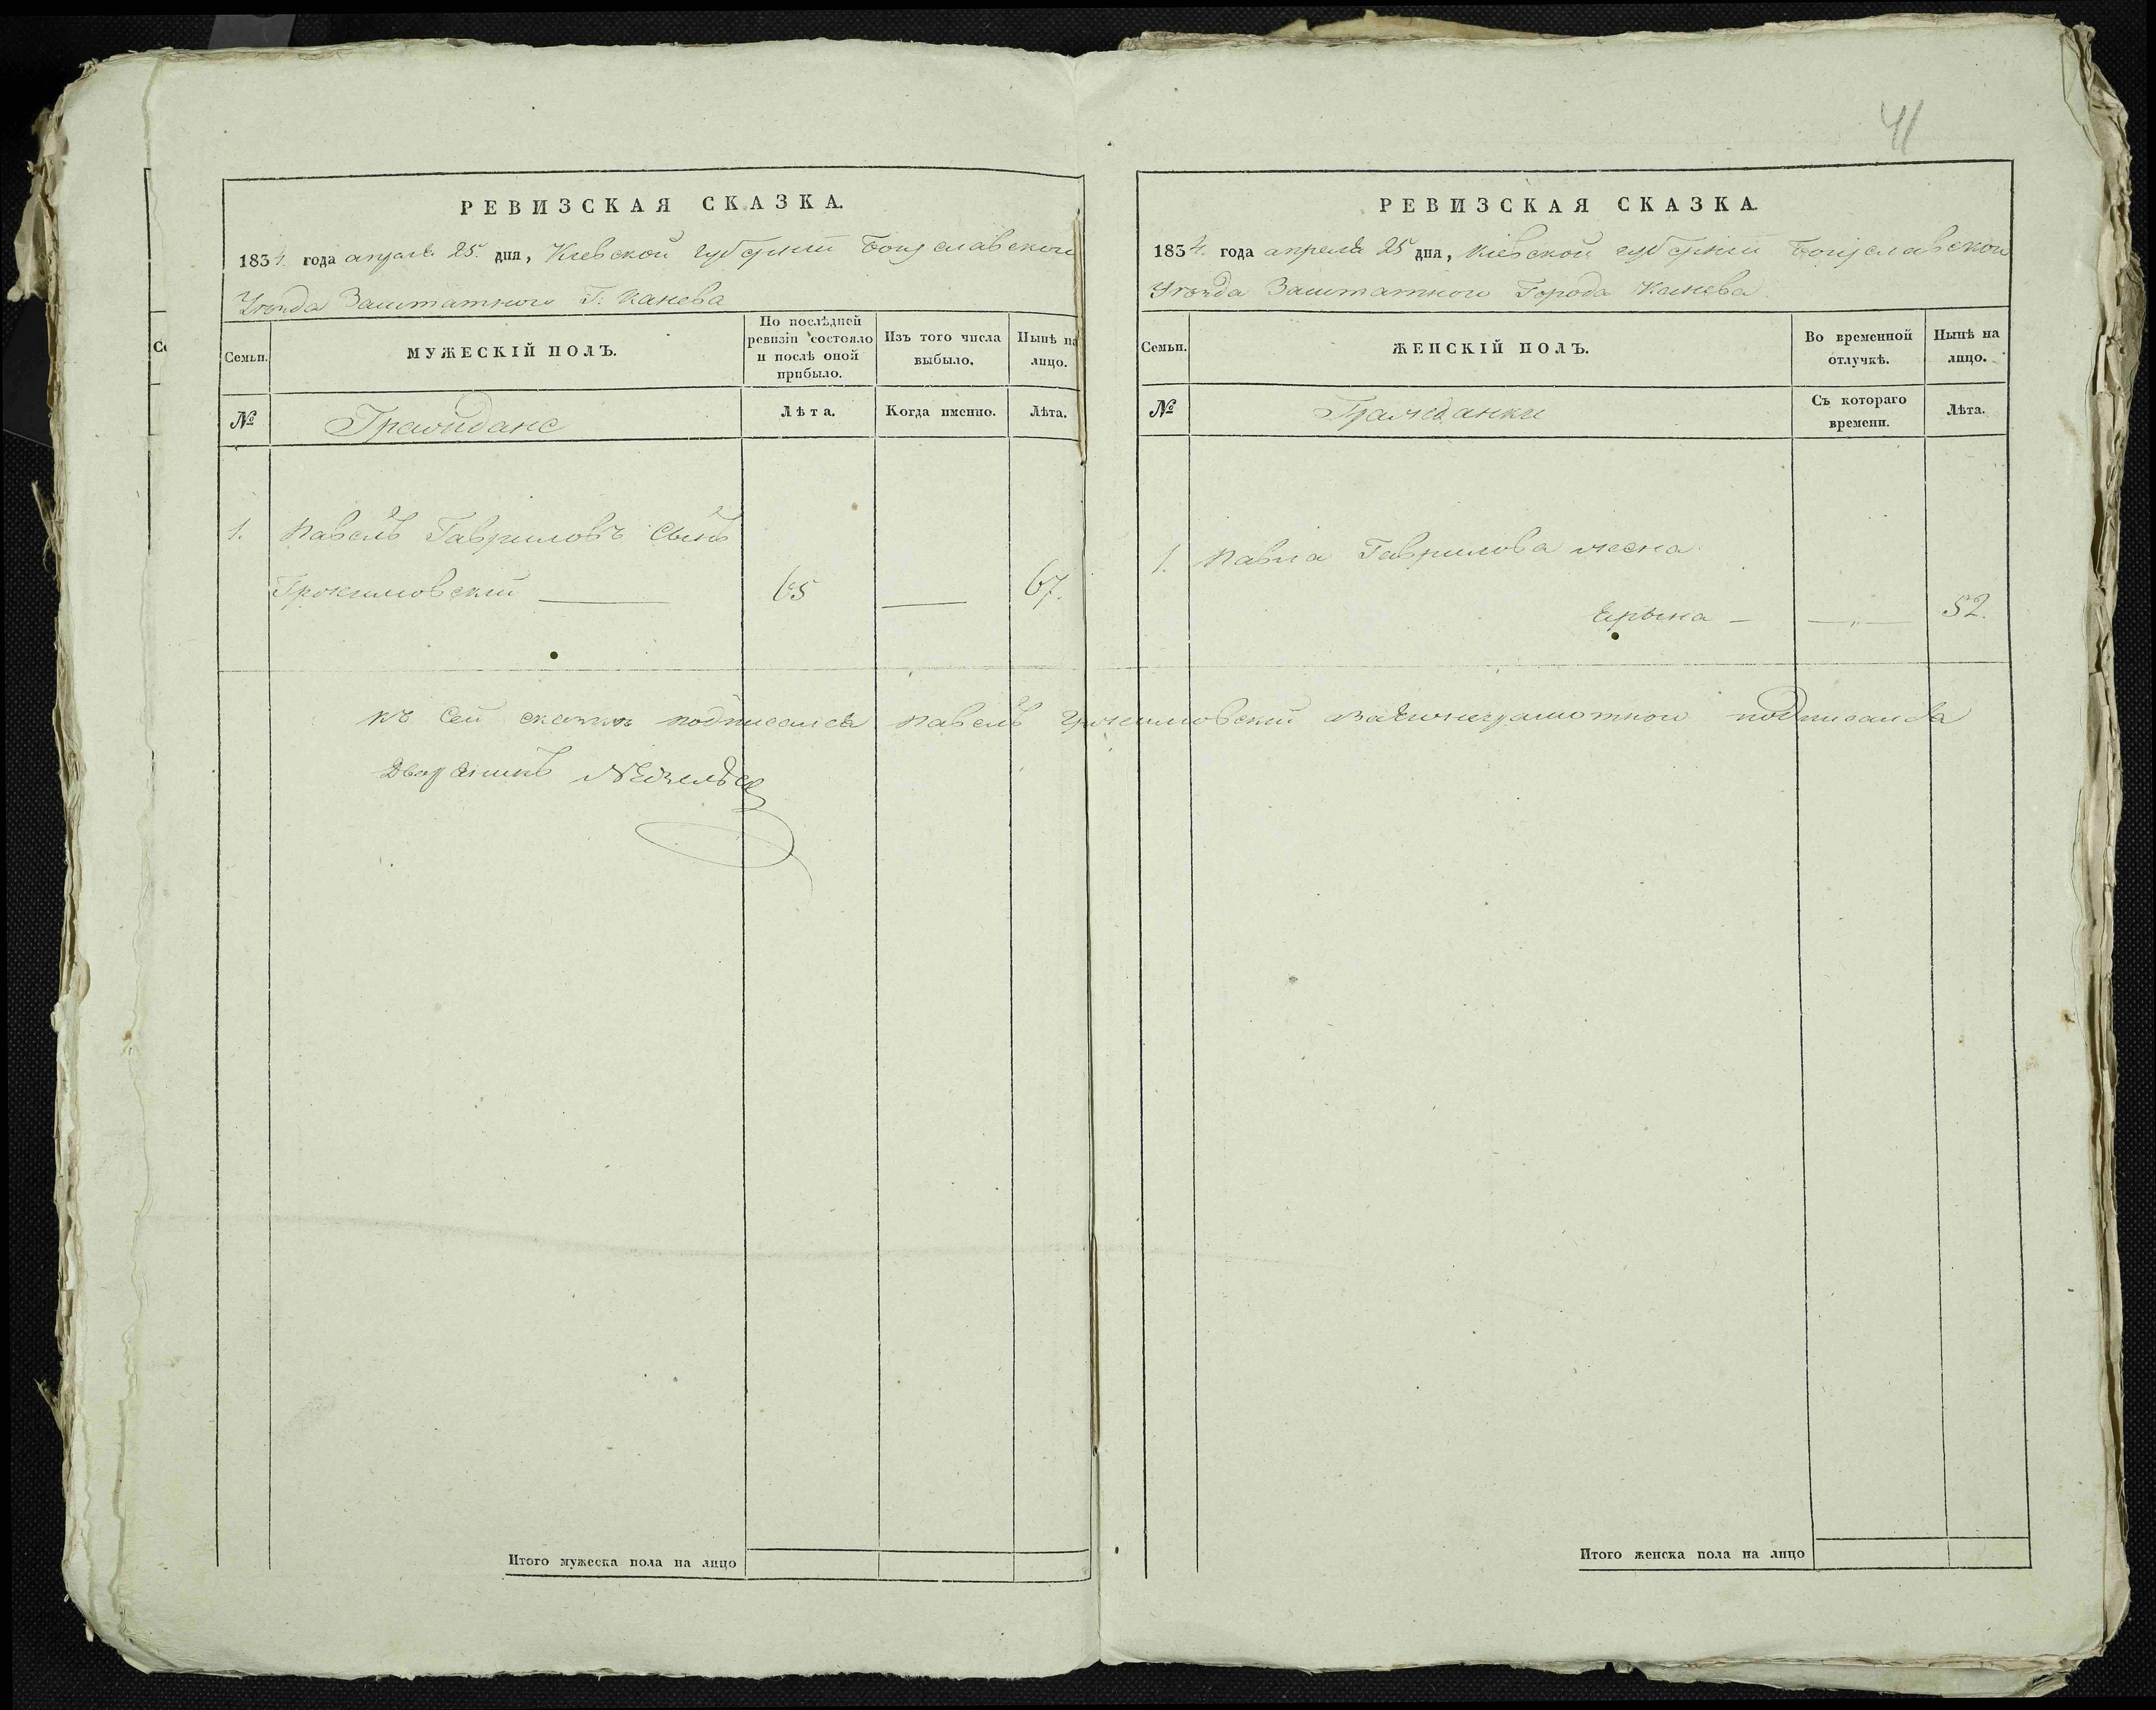 41
РЕВИЗСКАЯ СКАЗКА.
1834. года апреля 25. дня, Киевской губернии Богуславского
Уезда Заштатного Г: Канева
Семьи.
МУЖЕСКІЙ ПОЛЪ.
По послѣдней ревизіи состояло и послѣ оной прибыло.
Изъ того числа выбыло.
Нынѣ на лицо.
№
Граждане
Лѣта.
Когда именно.
Лѣта.
1. Павелъ Гавриловъ Сынъ
65 67.
Итого мужеска пола на лицо
РЕВИЗСКАЯ СКАЗКА.
1834. года апреля 25 дня, Киевской губернии Богуславского
Уезда Заштатного Города Канева
Семьи.
ЖЕНСКІЙ ПОЛЪ.
Во временной отлучкѣ.
Нынѣ на лицо.
№
Гражданки
Съ котораго времени.
Лѣта.
1. Павла Гаврилова жена
Ерына — 52.
Итого женска пола на лицо
къ сей сказки подписался Павелъ подписался
Дворянинъ